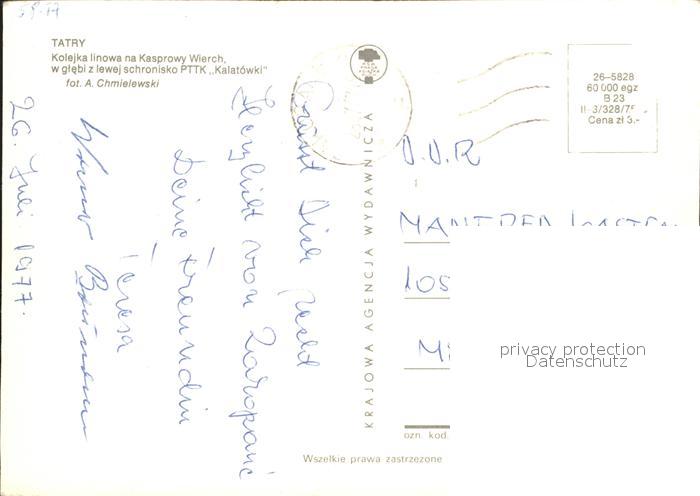 59-77
TATRY
Kolejka linowa na Kasprowy Wierch,
w głębi z lewej schronisko PTTK „Kalatówki"
fot. A. Chmielewski
26–5828
60 000 egz
B 23
Cena zł 3.-
KRAJOWA AGENCJA WYDAWNICZA
Grüsst Dich recht
Herzlichst von Zakopane
Deine Freundin
Teresa
26. Juli 1977.
D.D.R
MANFRED
105
privacy protection
Datenschutz
ozn. kod.
Wszelkie prawa zastrzeżone